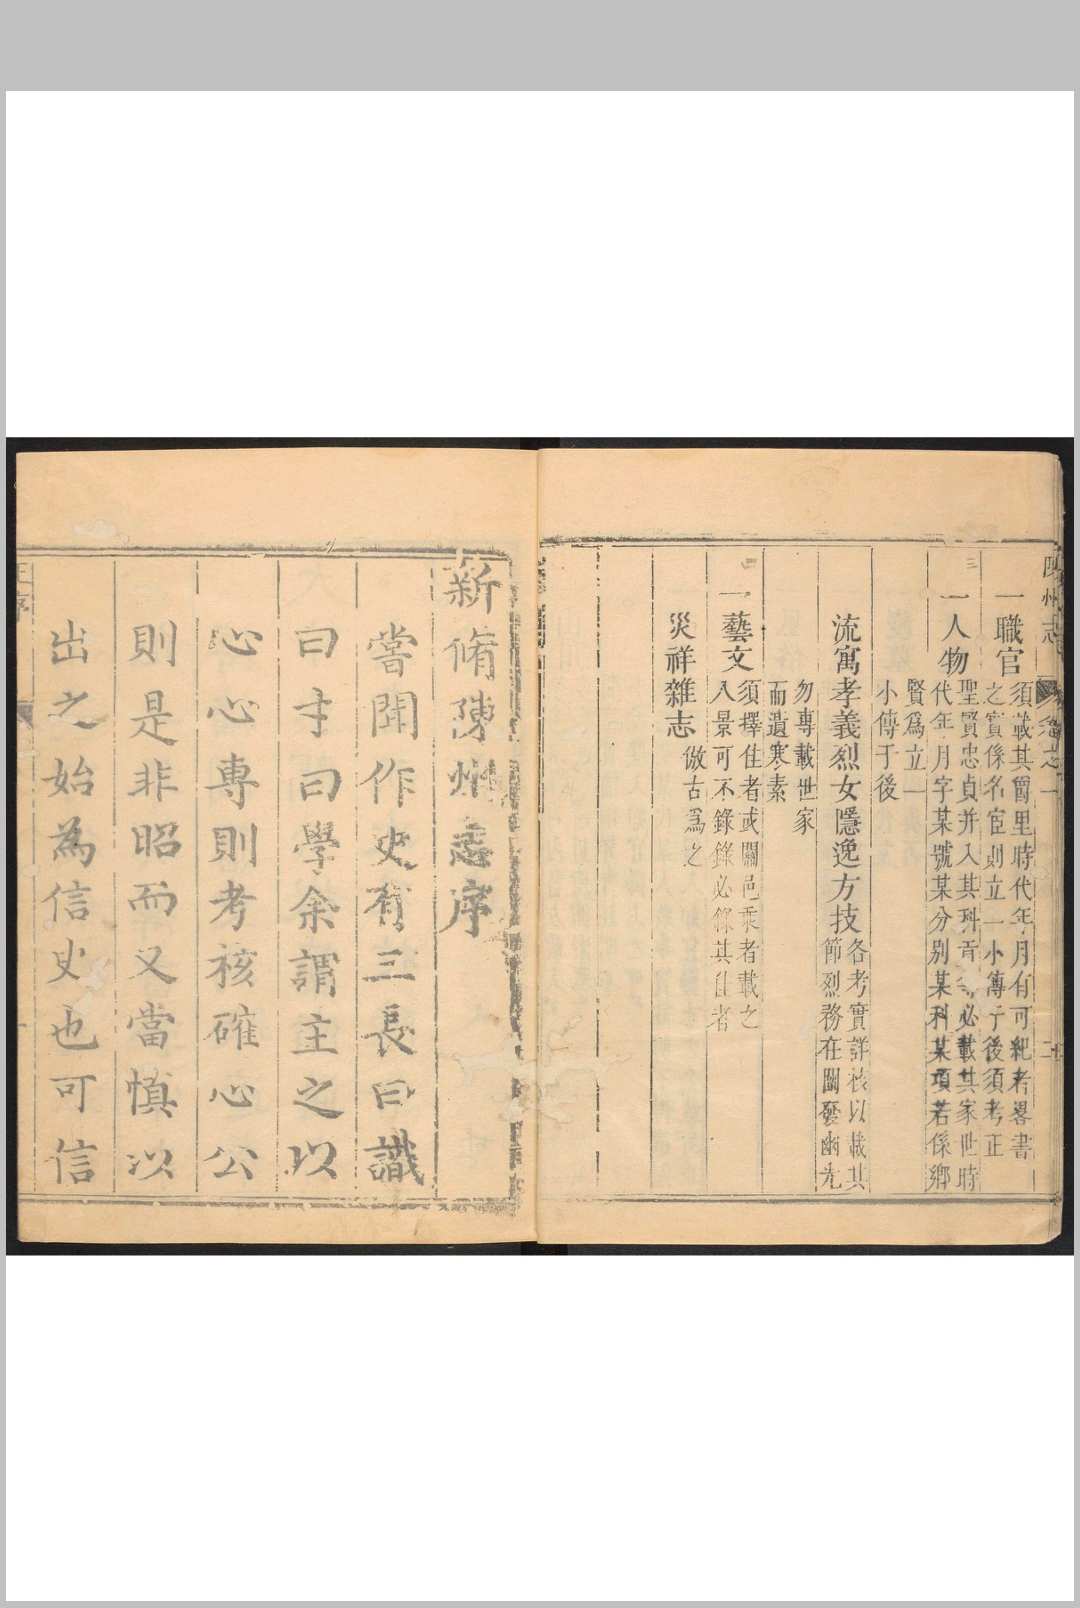 陳州志 卷之一
一職官
須載其爵里時代年月有可紀者畧書
之實係名宦則立一小傳于後須考正
一人物
聖賢忠貞并入其科 必載其家世時
代年月字某號某分别某科某項若係鄉
賢爲立一
小傳于後
流寓孝義烈女隱逸方技
各考實詳核以載其
節烈務在闡發幽光
勿專載世家
而遺寒素
一藝文
須擇佳者或關邑乗者載之
入景可不錄錄必條其佳者
災祥雜志
倣古爲之
新脩陳州志序
嘗聞作史有三長曰識
曰才曰學余謂主之以
心心專則考核確心公
則是非昭而又當慎以
出之始為信史也可信
王序